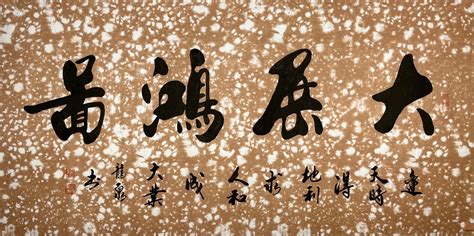 大展鴻圖
運天時得地利求人和成大業
龍泉书